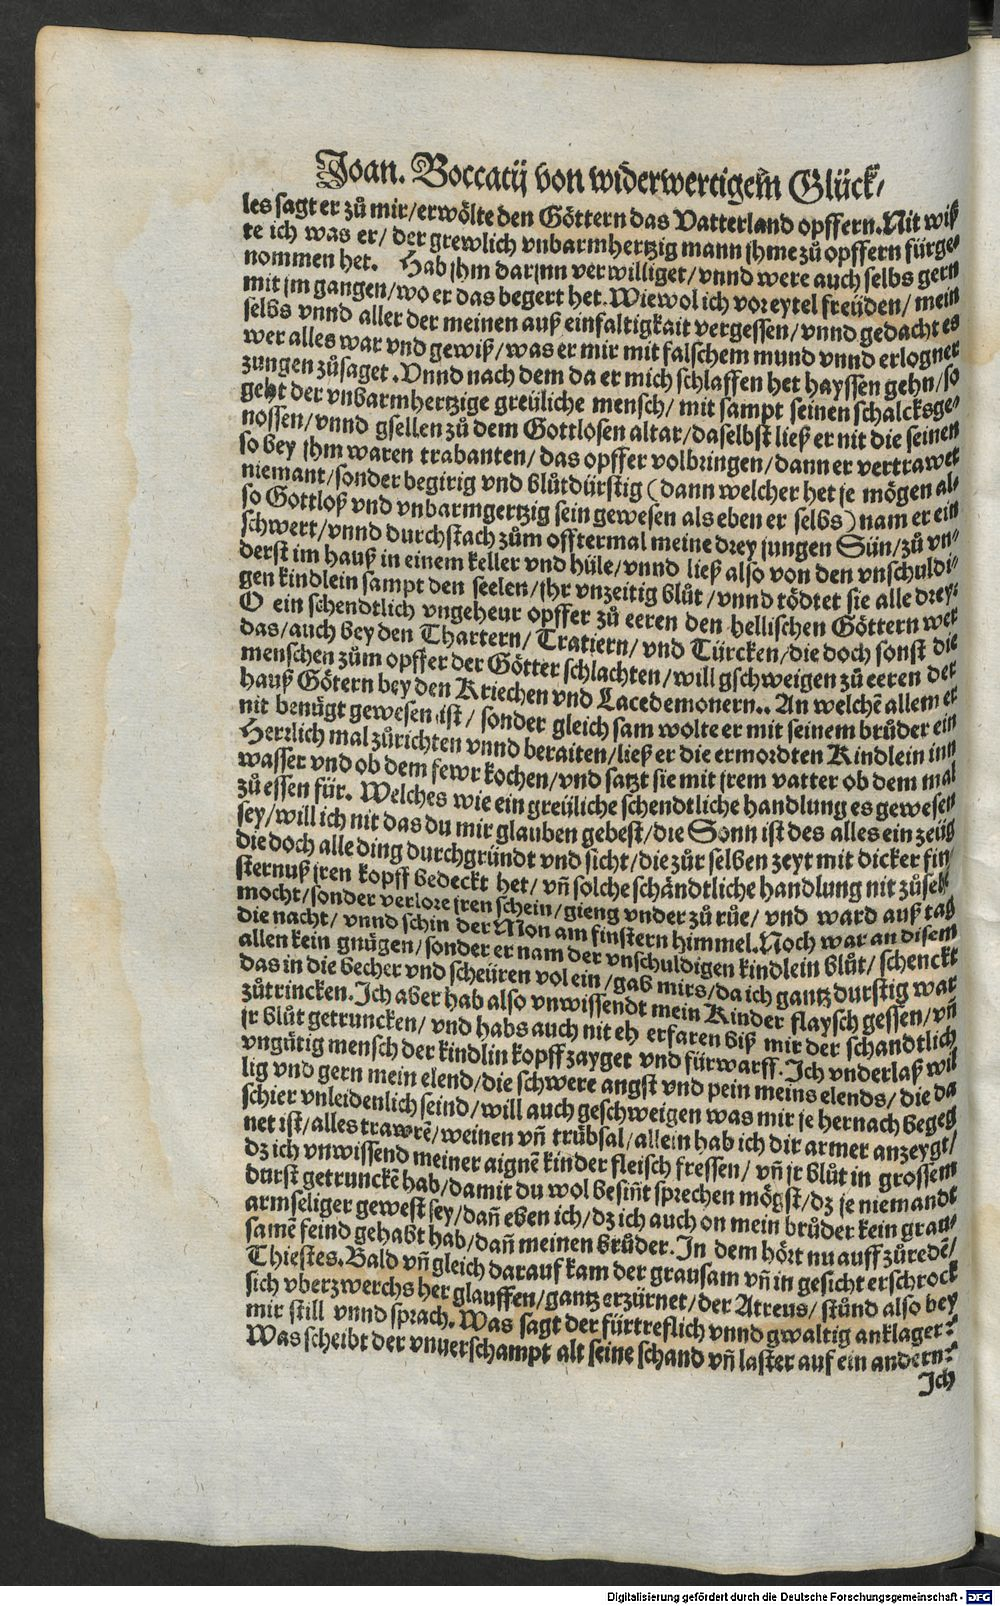 Joan. Boccatij von widerwertigem Glück/
les sagt er zů mir/erwölte den Göttern das Vatterland opffern. Nit wiß
te ich was er/ der grewlich vnbarmhertzig mann jhme zů opffern fürge-
nommen het. Hab jhm darjnn verwilliget/ vnnd were auch selbs gern
mit jm gangen/ wo er das begert het. Wiewol ich vor eytel freüden/ mein
selbs vnnd aller der meinen auß einfaltigkait vergessen/ vnnd gedacht es
wer alles war vnd gewiß/ was er mir mit falschem mund vnnd erlogner
zungen zůsaget. Vnnd nach dem da er mich schlaffen het hayssen gehn/ so
geht der vnbarmhertzige greüliche mensch/ mit sampt seinen schalcksge-
nossen/ vnnd gsellen zů dem Gottlosen altar/ daselbst ließ er nit die seinen
so bey jhm waren trabanten/ das opffer volbringen/ dann er vertrawet
niemant/ sonder begirig vnd blůtdürstig (dann welcher het je mögen al-
so Gottloß vnd vnbarmgertzig sein gewesen als eben er selbs) nam er ein
schwert/ vnnd durchstach zům offtermal meine drey jungen Sün/ zů vn-
derst im hauß in einem keller vnd hüle/ vnnd ließ also von den vnschuldi-
gen kindlein sampt den seelen/ jhr vnzeitig blůt/ vnnd tödtet sie alle drey.
O ein schendtlich vngeheur opffer zů eeren den hellischen Göttern wer
das/ auch bey den Thartern/ Tratiern/ vnd Türcken/ die doch sonst die
menschen zům opffer der Götter schlachten/ will gschweigen zů eeren der
hauß Götern bey den Kriechen vnd Lacedemonern.. An welchē allem er
nit benügt gewesen ist/ sonder gleich sam wolte er mit seinem brůder ein
Herrlich mal zůrichten vnnd beraiten/ ließ er die ermordten Kindlein inn
wasser vnd ob dem fewr kochen/ vnd satzt sie mit jrem vatter ob dem mal
zů essen für. Welches wie ein greüliche schendtliche handlung es gewesen
sey/ will ich nit das du mir glauben gebest/ die Sonn ist des alles ein zeüg
die doch alle ding durchgründt vnd sicht/ die zůr selben zeyt mit dicker fin-
sternuß jren kopff bedeckt het/ vñ solche schändtliche handlung nit zůsehē
mocht/ sonder verlore jren schein/ gieng vnder zů růe/ vnd ward auß tag
die nacht/ vnnd schin der Mon am finstern himmel. Noch war an disem
allen kein gnügen/ sonder er nam der vnschuldigen kindlein blůt/ schenckt
das in die becher vnd scheüren vol ein/ gab mirs/ da ich gantz durstig war
zůtrincken. Ich aber hab also vnwissendt mein Kinder flaysch gessen/ vñ
jr blůt getruncken/ vnd habs auch nit eh erfaren biß mir der schandtlich
vngütig mensch der kindlin kopff zayget vnd fürwarff. Ich vnderlaß wil
lig vnd gern mein elend/ die schwere angst vnd pein meins elends/ die da
schier vnleidenlich seind/ will auch geschweigen was mir je hernach begeg
net ist/ alles trawrē/ weinen vñ trübsal/ allein hab ich dir armer anzeygt/
dz ich vnwissend meiner aignē kinder fleisch fressen/ vñ jr blůt in grossem
durst getrunckē hab/ damit du wol besiñt sprechen mögst/ dz je niemandt
armseliger gewest sey/ dañ eben ich/ dz ich auch on mein brůder kein grau-
samē feind gehabt hab/ dañ meinen brůder. In dem hört nu auff zůredē/
Thiestes. Bald vñ gleich darauf kam der grausam vñ in gesicht erschrock
sich vberzwerchs her glauffen/ gantz erzürnet/ der Atreus/ stůnd also bey
mir still vnnd sprach. Was sagt der fürtreflich vnnd gwaltig anklager?
Was scheibt der vnuerschampt alt seine schand vñ laster auf ein andern?
Ich
Digitalisierung gefördert durch die Deutsche Forschungsgemeinschaft - DFG